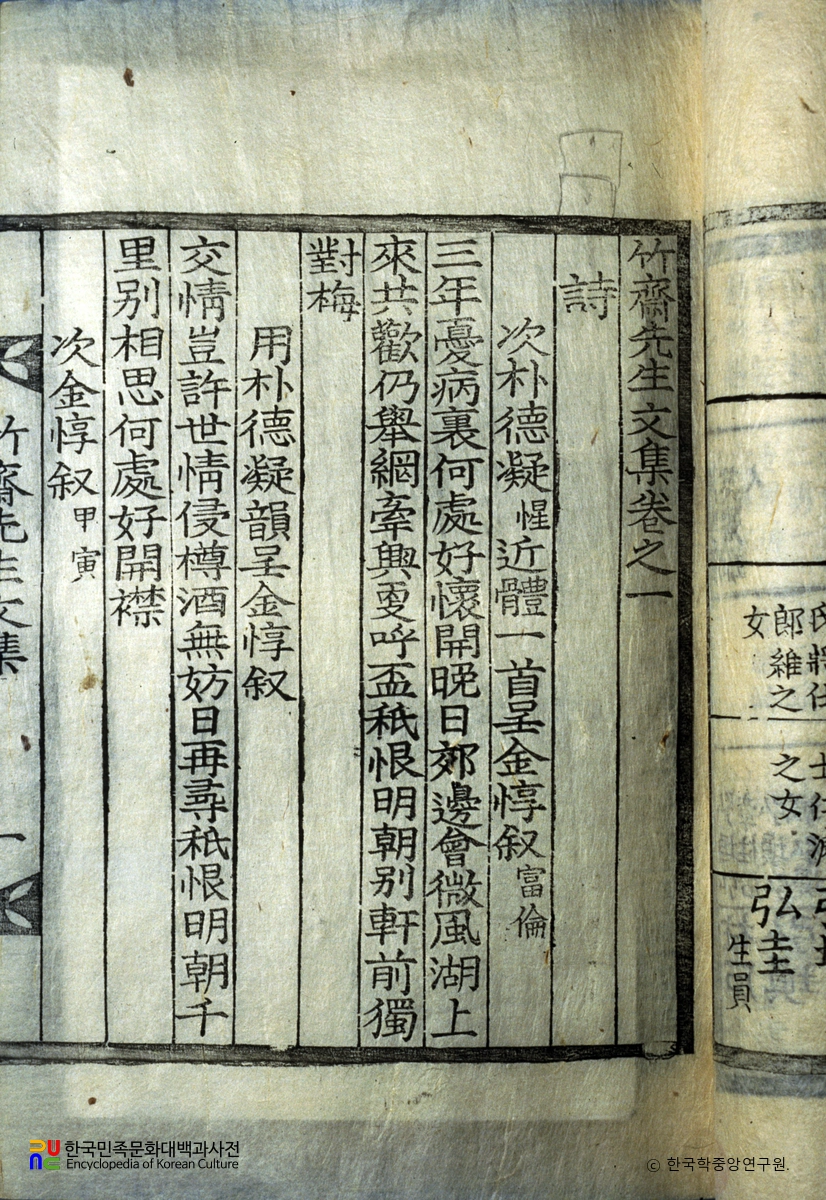 郎維之
女
之女
弘圭
生員
竹齋先生文集卷之一
詩
次朴德凝惺近體一首呈金惇叙富倫
三年憂病裏何處好懷開晚日郊邊會微風湖上
來共歡仍舉網牽興更呼盃秖恨明朝别軒前獨
對梅
用朴德凝韻呈金惇叙
交情豈許世情侵樽酒無妨日再尋秖恨明朝千
里别相思何處好開襟
次金惇叙甲寅
竹齋先生文集 一
한국민족문화대백과사전
Encyclopedia of Korean Culture
© 한국학중앙연구원.